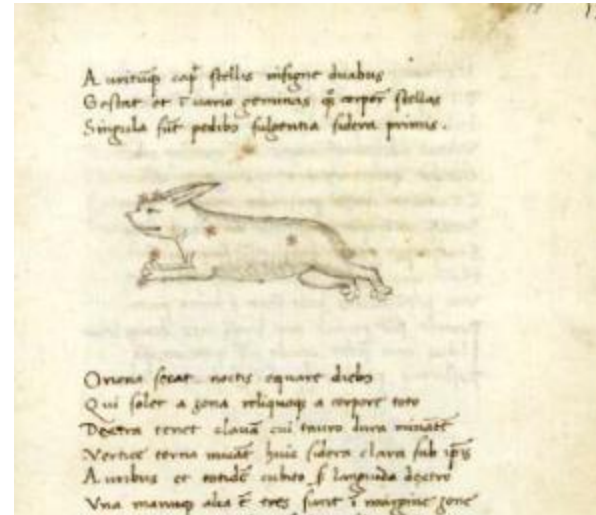 Auritumq; cap̄ stellis insigne duabus
Gestat et ī uario geminas q̄ corpore stellas
Singula sūt pedibȝ fulgentia sidera primis.
Oriona secat noctis equare diebȝ
Qui solet a zona reliquoq; a corpore toto
Dextra tenet clauā cui tauro dura
Vertice terna micāt huic sidera clara sub ip̄is
Auribus et totidē cubito languida dextro
Vna manuq; alia ē tres sunt ī margine zone